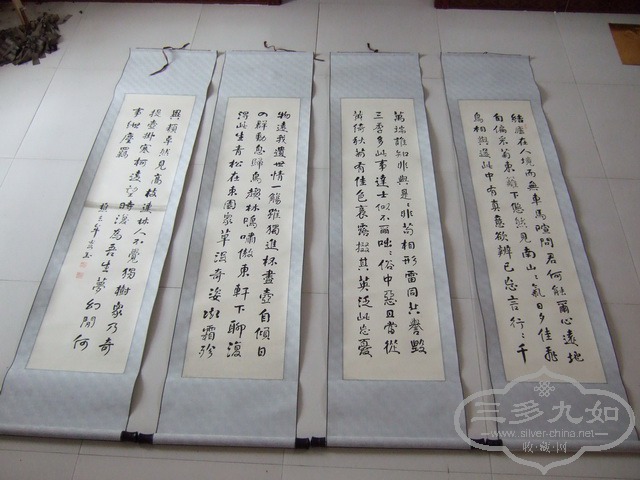 結廬在人境而無車馬喧問君何能爾心遠地
自偏采菊東籬下悠然見南山〻氣日夕佳飛
鳥相與還此中有真意欲辨已忘言行止千
萬端誰知非與是〻非苟相形雷同共譽毀
三季多此事達士似不爾咄〻俗中惡且當從
黃綺秋菊有佳色裛露掇其英泛此忘憂
物遠我遺世情一觴雖獨進杯盡壺自傾日
入群動息歸鳥趨林鳴嘯傲東軒下聊復
得此生青松在東園眾草沒奇姿凝霜殄
異類卓然見高枝連林人不覺獨樹眾乃奇
提壺掛寒柯遠望時復為吾生夢幻間何
事紲塵羈
三多九如
www.silver-china.net
收藏网